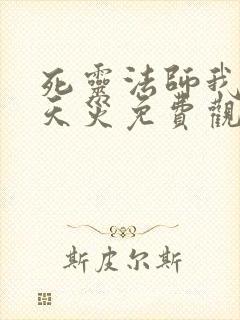 死靈法師我
天災免費觀
斯皮尔斯